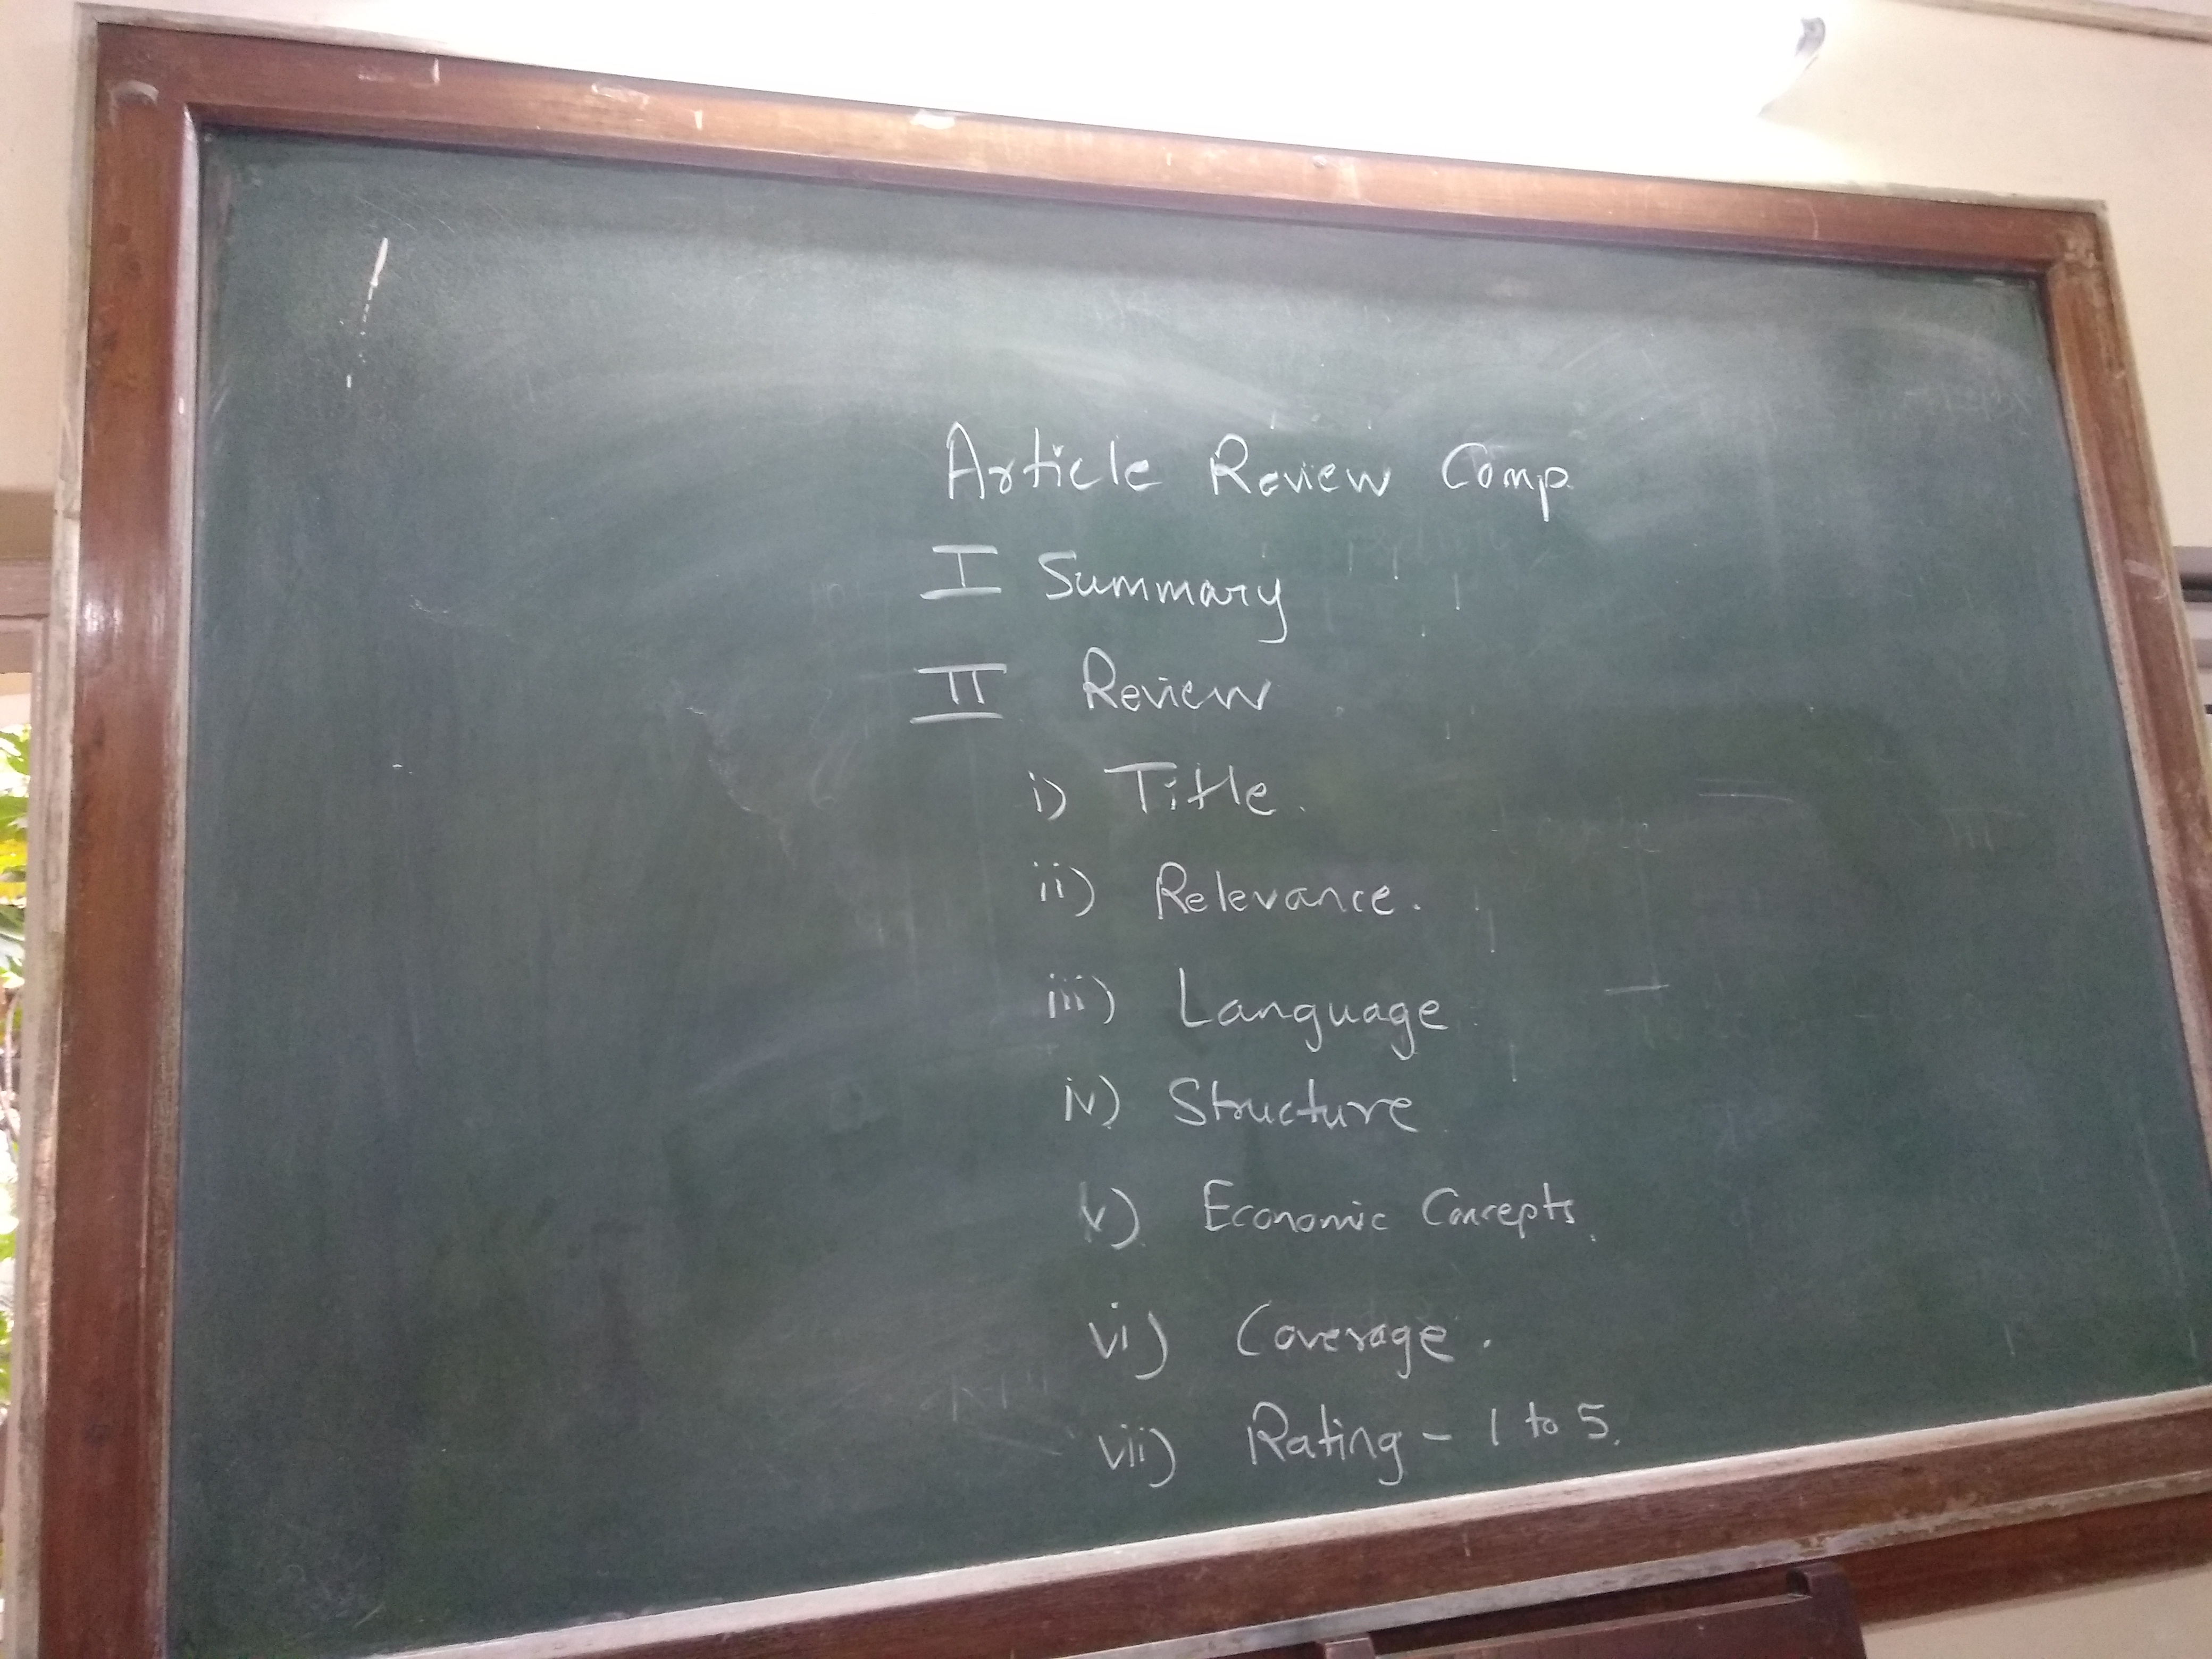 Article Review Comp.
I Summary
II Review
i) Title.
ii) Relevance.
iii) Language
iv) Structure
v) Economic Concepts.
vi) Coverage.
vii) Rating - 1 to 5.